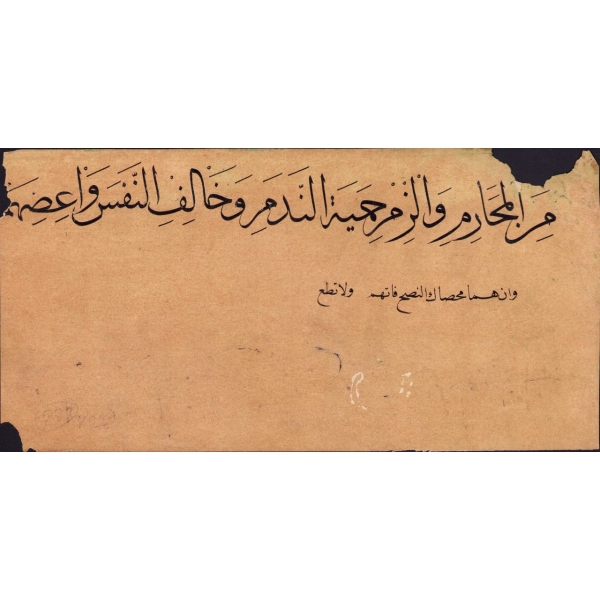 مِنَ الْمَحَارِمِ وَالْزَمْ حِمْيَةَ النَّدَمِ وَخَالِفِ النَّفْسَ وَاعْصِهِمَ
وان هما محصاك النصح فاتهم ولا تطع